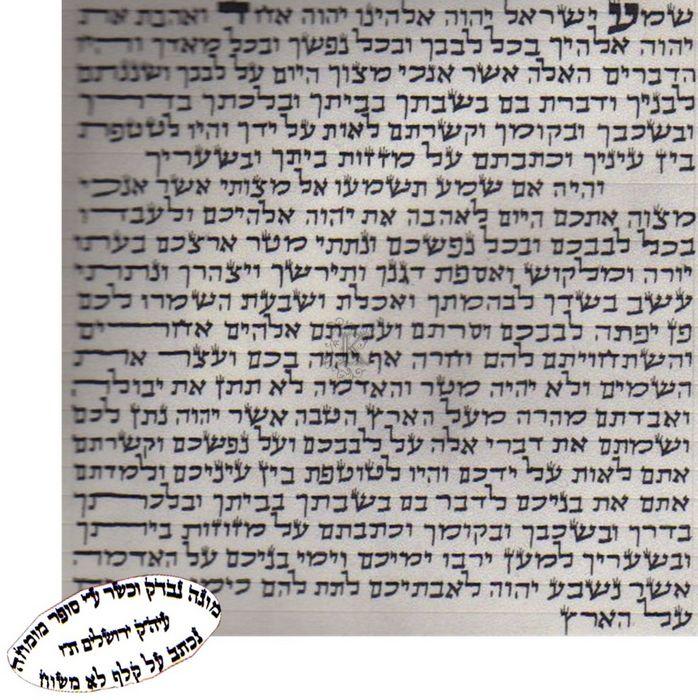 שמע ישראל יהוה אלהינו יהוה אחד ואהבת את
יהוה אלהיך בכל לבבך ובכל נפשך ובכל מאדך והיו
הדברים האלה אשר אנכי מצוך היום על לבבך ושננתם
לבניך ודברת בם בשבתך בביתך ובלכתך בדרך
ובשכבך ובקומך וקשרתם לאות על ידך והיו לטטפת
בין עיניך וכתבתם על מזזות ביתך ובשעריך
והיה אם שמע תשמעו אל מצותי אשר אנכי
מצוה אתכם היום לאהבה את יהוה אלהיכם ולעבדו
בכל לבבכם ובכל נפשכם ונתתי מטר ארצכם בעתו
יורה ומלקוש ואספת דגנך ותירשך ויצהרך ונתתי
עשב בשדך לבהמתך ואכלת ושבעת השמרו לכם
פן יפתה לבבכם וסרתם ועבדתם אלהים אחרים
והשתחויתם להם וחרה אף יהוה בכם ועצר את
השמים ולא יהיה מטר והאדמה לא תתן את יבולה
ואבדתם מהרה מעל הארץ הטבה אשר יהוה נתן לכם
ושמתם את דברי אלה על לבבכם ועל נפשכם וקשרתם
אתם לאות על ידכם והיו לטוטפת בין עיניכם ולמדתם
אתם את בניכם לדבר בם בשבתך בביתך ובלכתך
בדרך ובשכבך ובקומך וכתבתם על מזוזות ביתך
ובשעריך למען ירבו ימיכם וימי בניכם על האדמה
אשר נשבע יהוה לאבתיכם לתת להם כימי
על הארץ
מוגה נבדק וכשר ע"י סופר מומחה
עיה"ק ירושלים ת"ו
נכתב על קלף לא משוח